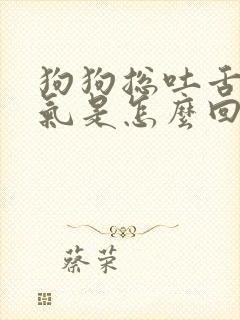 狗狗总吐舌
氣是怎麼回
蔡荣